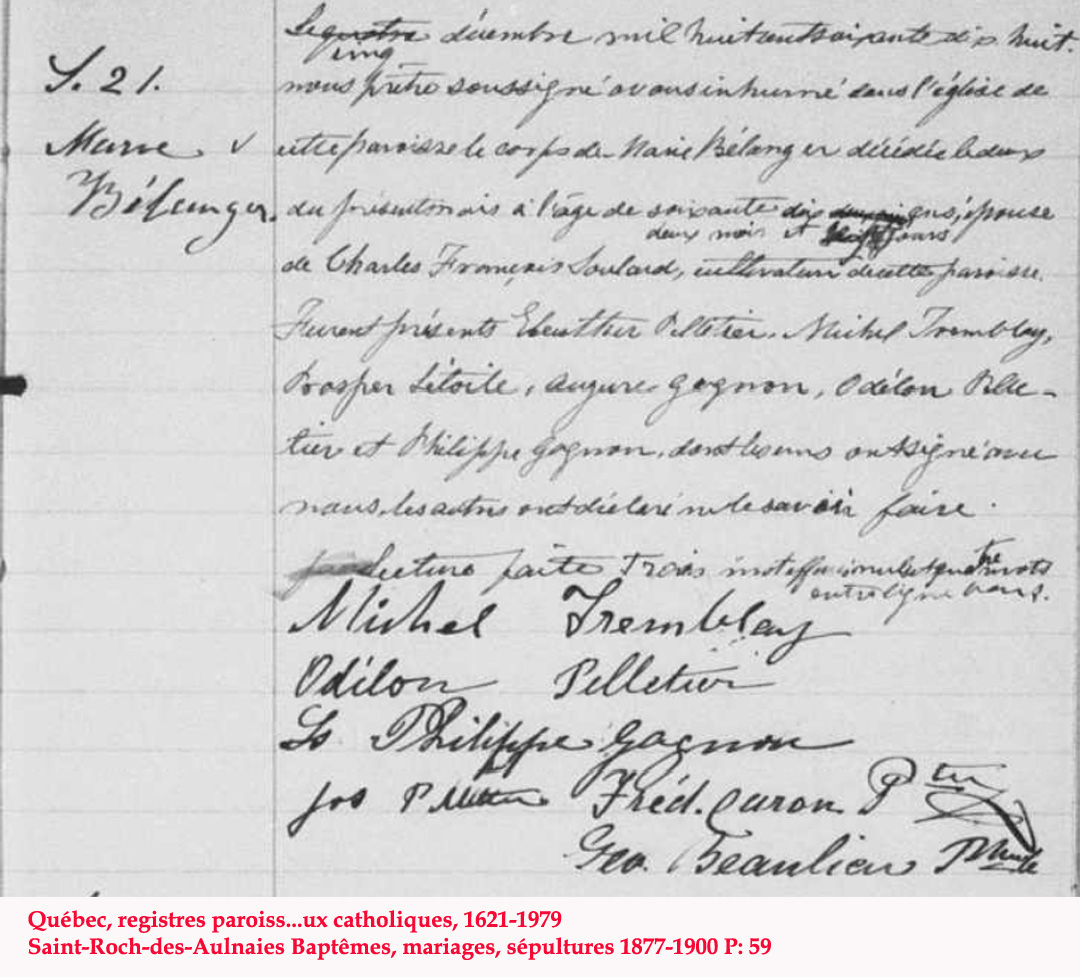 Le quatre décembre mil huit cent soixante dix huit.
cinq
S. 21. nous prêtre soussigné avons inhumé dans l'église de
Marie cette paroisse le corps de Marie Bélanger décédée le deux
Bélanger. du présent mois à l'âge de soixante dix ans, épouse
deux mois et jours
de Charles François Soulard, cultivateur de cette paroisse.
Furent présents Eleuthère Pelletier, Michel Tremblay,
Prosper Létoile, Gagnon, Odélon Pelle-
tier et Philippe Gagnon, dont les uns ont signé avec
nous, les autres ont déclaré ne le savoir faire.
Lecture faite Trois mots nuls et quatre mots
entreligne bons.
Michel Tremblay
Odilon Pelletier
Ls Philippe Gagnon
Jos Fréd. Caron Ptre
Geo. Beaulieu Ptre
Québec, registres paroiss...ux catholiques, 1621-1979
Saint-Roch-des-Aulnaies Baptêmes, mariages, sépultures 1877-1900 P: 59